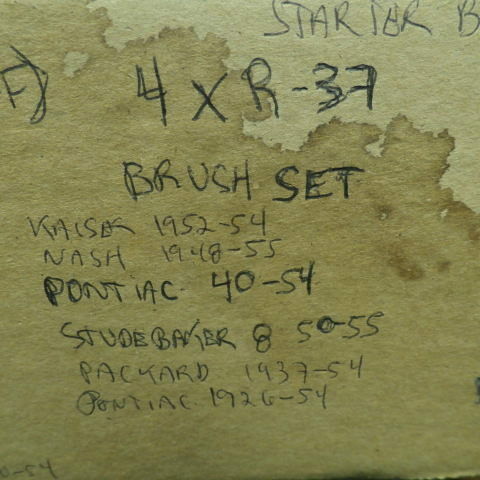 STARTER B
F) 4 X R-37
BRUSH SET
KAISER 1952-54
NASH 1948-55
PONTIAC 40-54
STUDEBAKER 8 50-55
PACKARD 1937-54
PONTIAC 1926-54
0-54